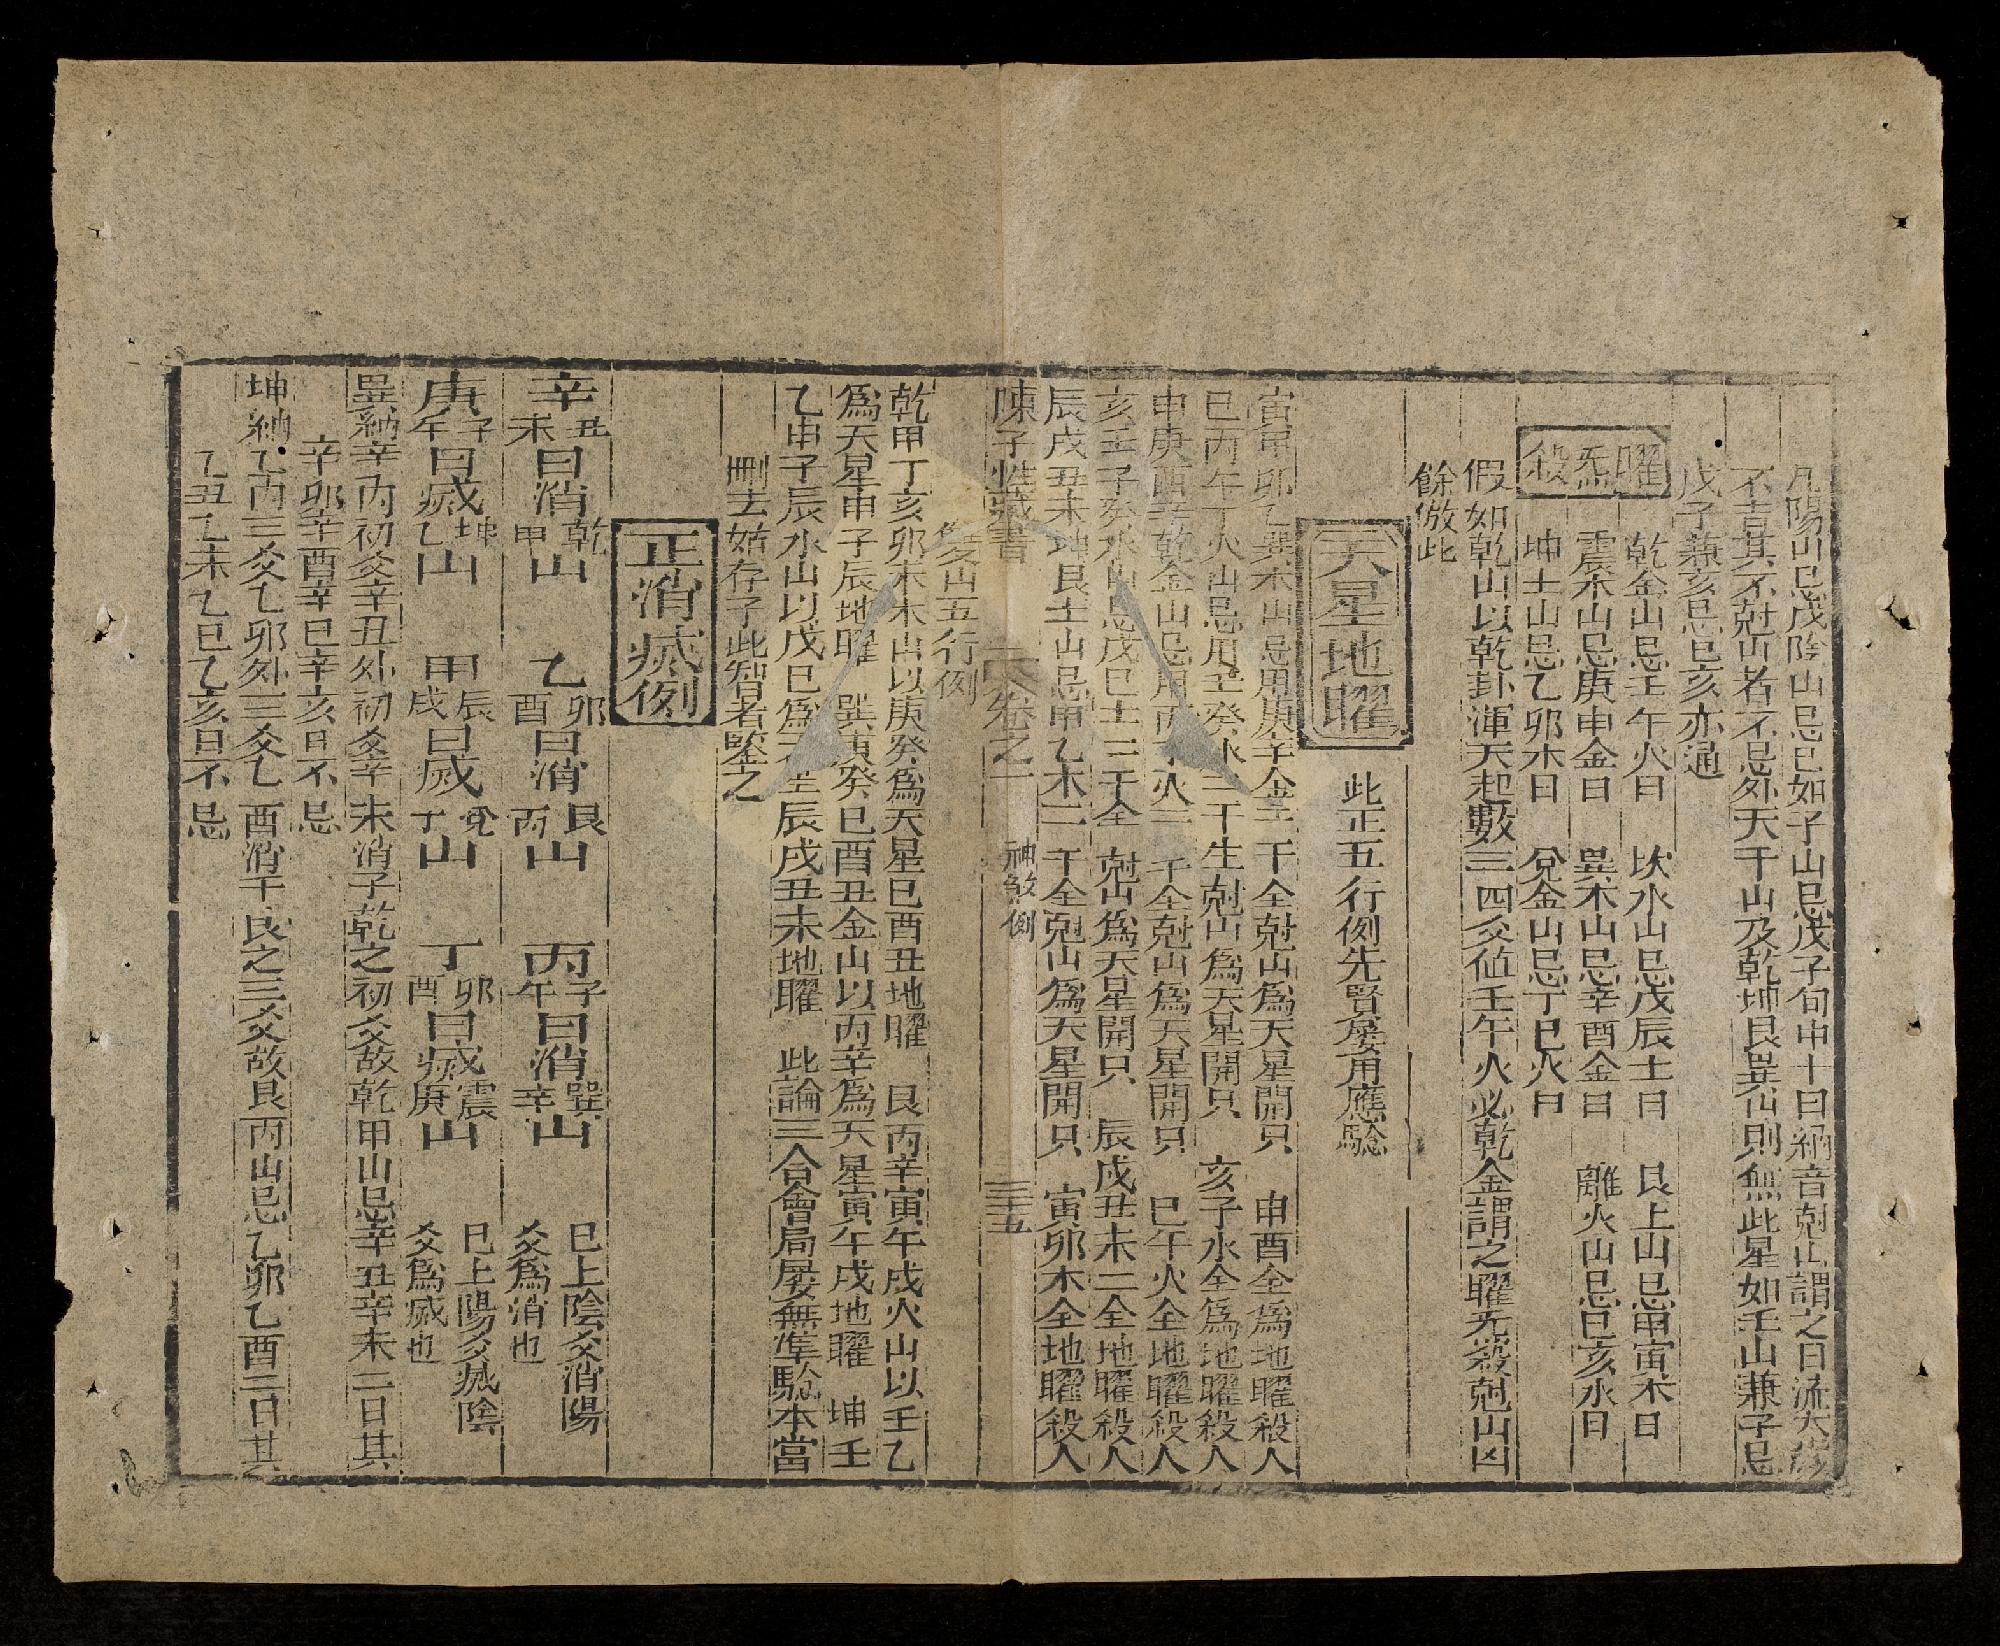 凡陽山忌戊陰山忌己如子山忌戊子旬中十日納音剋山謂之日流太
不吉其不剋山者不忌外天干山及乾坤艮巽山則無此星如壬山兼子忌
戊子兼亥忌己亥亦通
曜炁殺
乾金山忌壬午火日 坎水山忌戊辰土日 艮土山忌甲寅木日
震木山忌庚申金日 巽木山忌辛酉金日 離火山忌己亥水日
坤土山忌乙卯木日 兌金山忌丁巳火日
假如乾山以乾卦渾天起數三四爻值壬午火必乾金謂之曜炁殺剋山凶
餘倣此
天星地曜 此正五行例先賢屢用應驗
寅甲卯乙巽木山忌用庚辛金二干全剋山爲天星開只 申酉全爲地曜殺人
巳丙午丁火山忌用壬癸水二干生剋山爲天星開只 亥子水全爲地曜殺人
申庚酉辛乾金山忌用丙丁火二干全剋山爲天星開只 巳午火全地曜殺人
亥壬子癸水山忌戊己土二干全剋山爲天星開只 辰戌丑未二全地曜殺人
辰戌丑未坤艮土山忌甲乙木二干全剋山爲天星開只 寅卯木全地曜殺人
陳子性藏書 卷之一 神煞例 三十五
變山五行例
乾甲丁亥卯未木山以庚癸爲天星巳酉丑地曜 艮丙辛寅午戌火山以壬乙
爲天星申子辰地曜 巽庚癸巳酉丑金山以丙辛爲天星寅午戌地曜 坤壬
乙申子辰水山以戊己爲天星辰戌丑未地曜 此論三合會局屢無準驗本當
刪去姑存予此智者鑒之
正消㓕例
辛丑未日消乾甲山 乙卯酉日消艮丙山 丙子午日消巽辛山 已上陰爻消陽爻爲消也
庚子午日㓕坤乙山 甲辰戌日㓕兌丁山 丁卯酉日㓕震庚山 已上陽爻㓕陰爻爲㓕也
巽納辛內初爻辛丑外初爻辛未消子乾之初爻故乾甲山忌辛丑辛未二日其
辛卯辛酉辛巳辛亥日不忌
坤納乙內三爻乙卯外三爻乙酉消于艮之三爻故艮丙山忌乙卯乙酉二日其
乙丑乙未乙巳乙亥日不忌